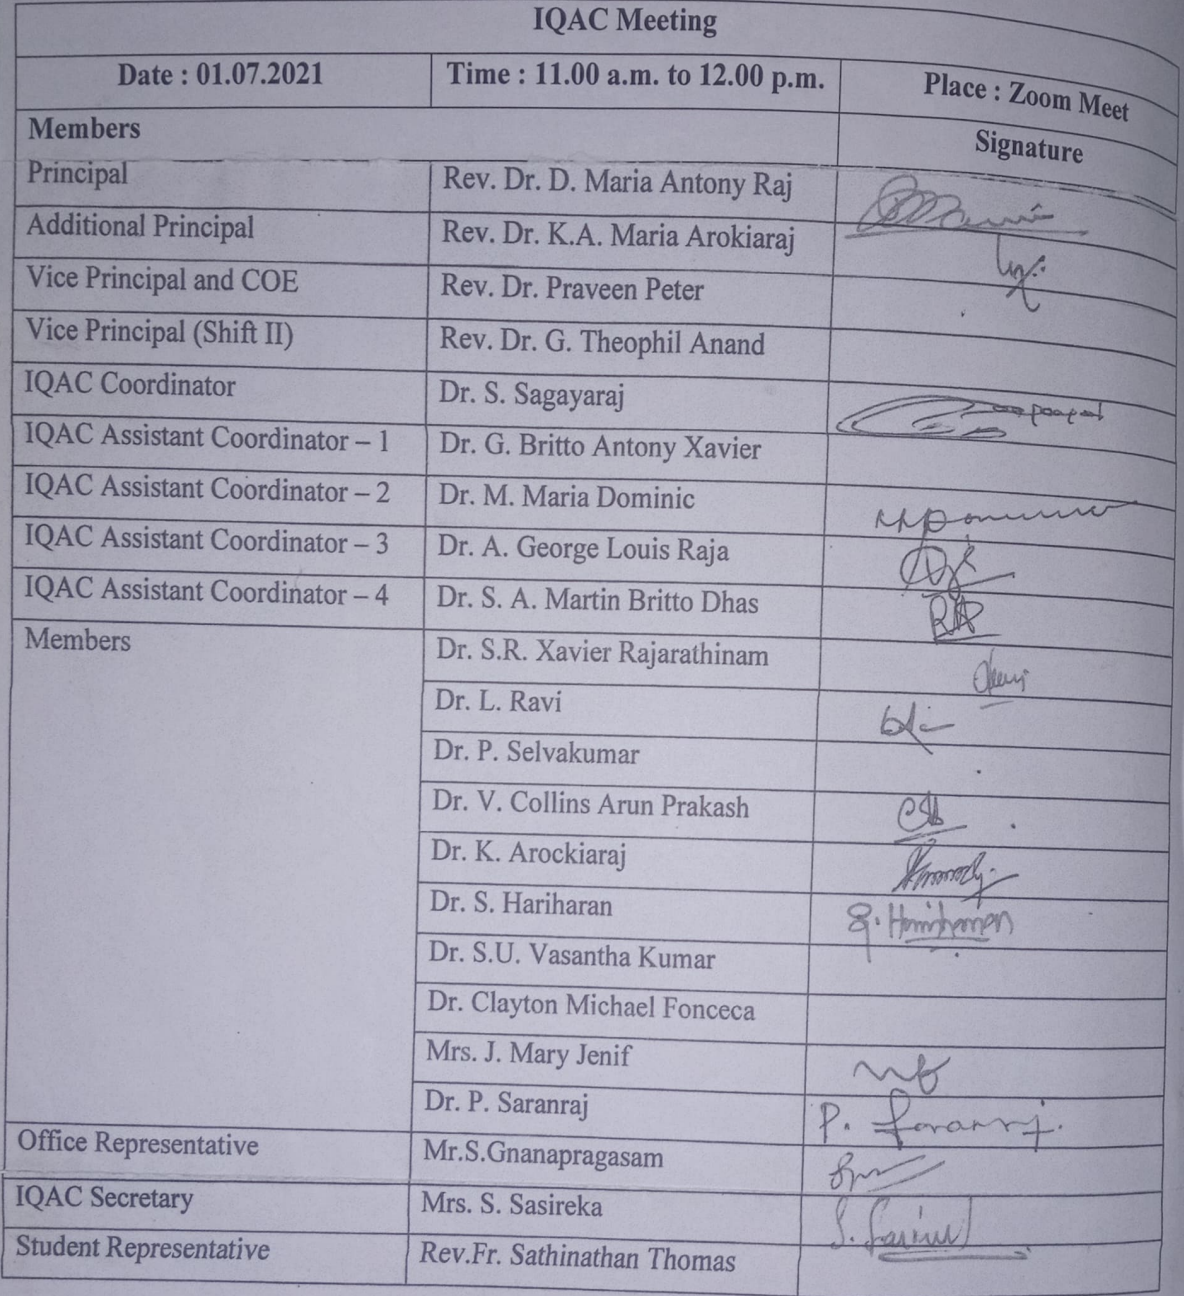 IQAC Meeting
Date : 01.07.2021 Time : 11.00 a.m. to 12.00 p.m. Place : Zoom Meet
Members Signature
Principal Rev. Dr. D. Maria Antony Raj
Additional Principal Rev. Dr. K.A. Maria Arokiaraj
Vice Principal and COE Rev. Dr. Praveen Peter
Vice Principal (Shift II) Rev. Dr. G. Theophil Anand
IQAC Coordinator Dr. S. Sagayaraj
IQAC Assistant Coordinator – 1 Dr. G. Britto Antony Xavier
IQAC Assistant Coordinator – 2 Dr. M. Maria Dominic
IQAC Assistant Coordinator – 3 Dr. A. George Louis Raja
IQAC Assistant Coordinator – 4 Dr. S. A. Martin Britto Dhas
Members Dr. S.R. Xavier Rajarathinam
Dr. L. Ravi
Dr. P. Selvakumar
Dr. V. Collins Arun Prakash
Dr. K. Arockiaraj
Dr. S. Hariharan S. Hariharan
Dr. S.U. Vasantha Kumar
Dr. Clayton Michael Fonceca
Mrs. J. Mary Jenif
Dr. P. Saranraj P. Saranraj.
Office Representative Mr.S.Gnanapragasam
IQAC Secretary Mrs. S. Sasireka
Student Representative Rev.Fr. Sathinathan Thomas